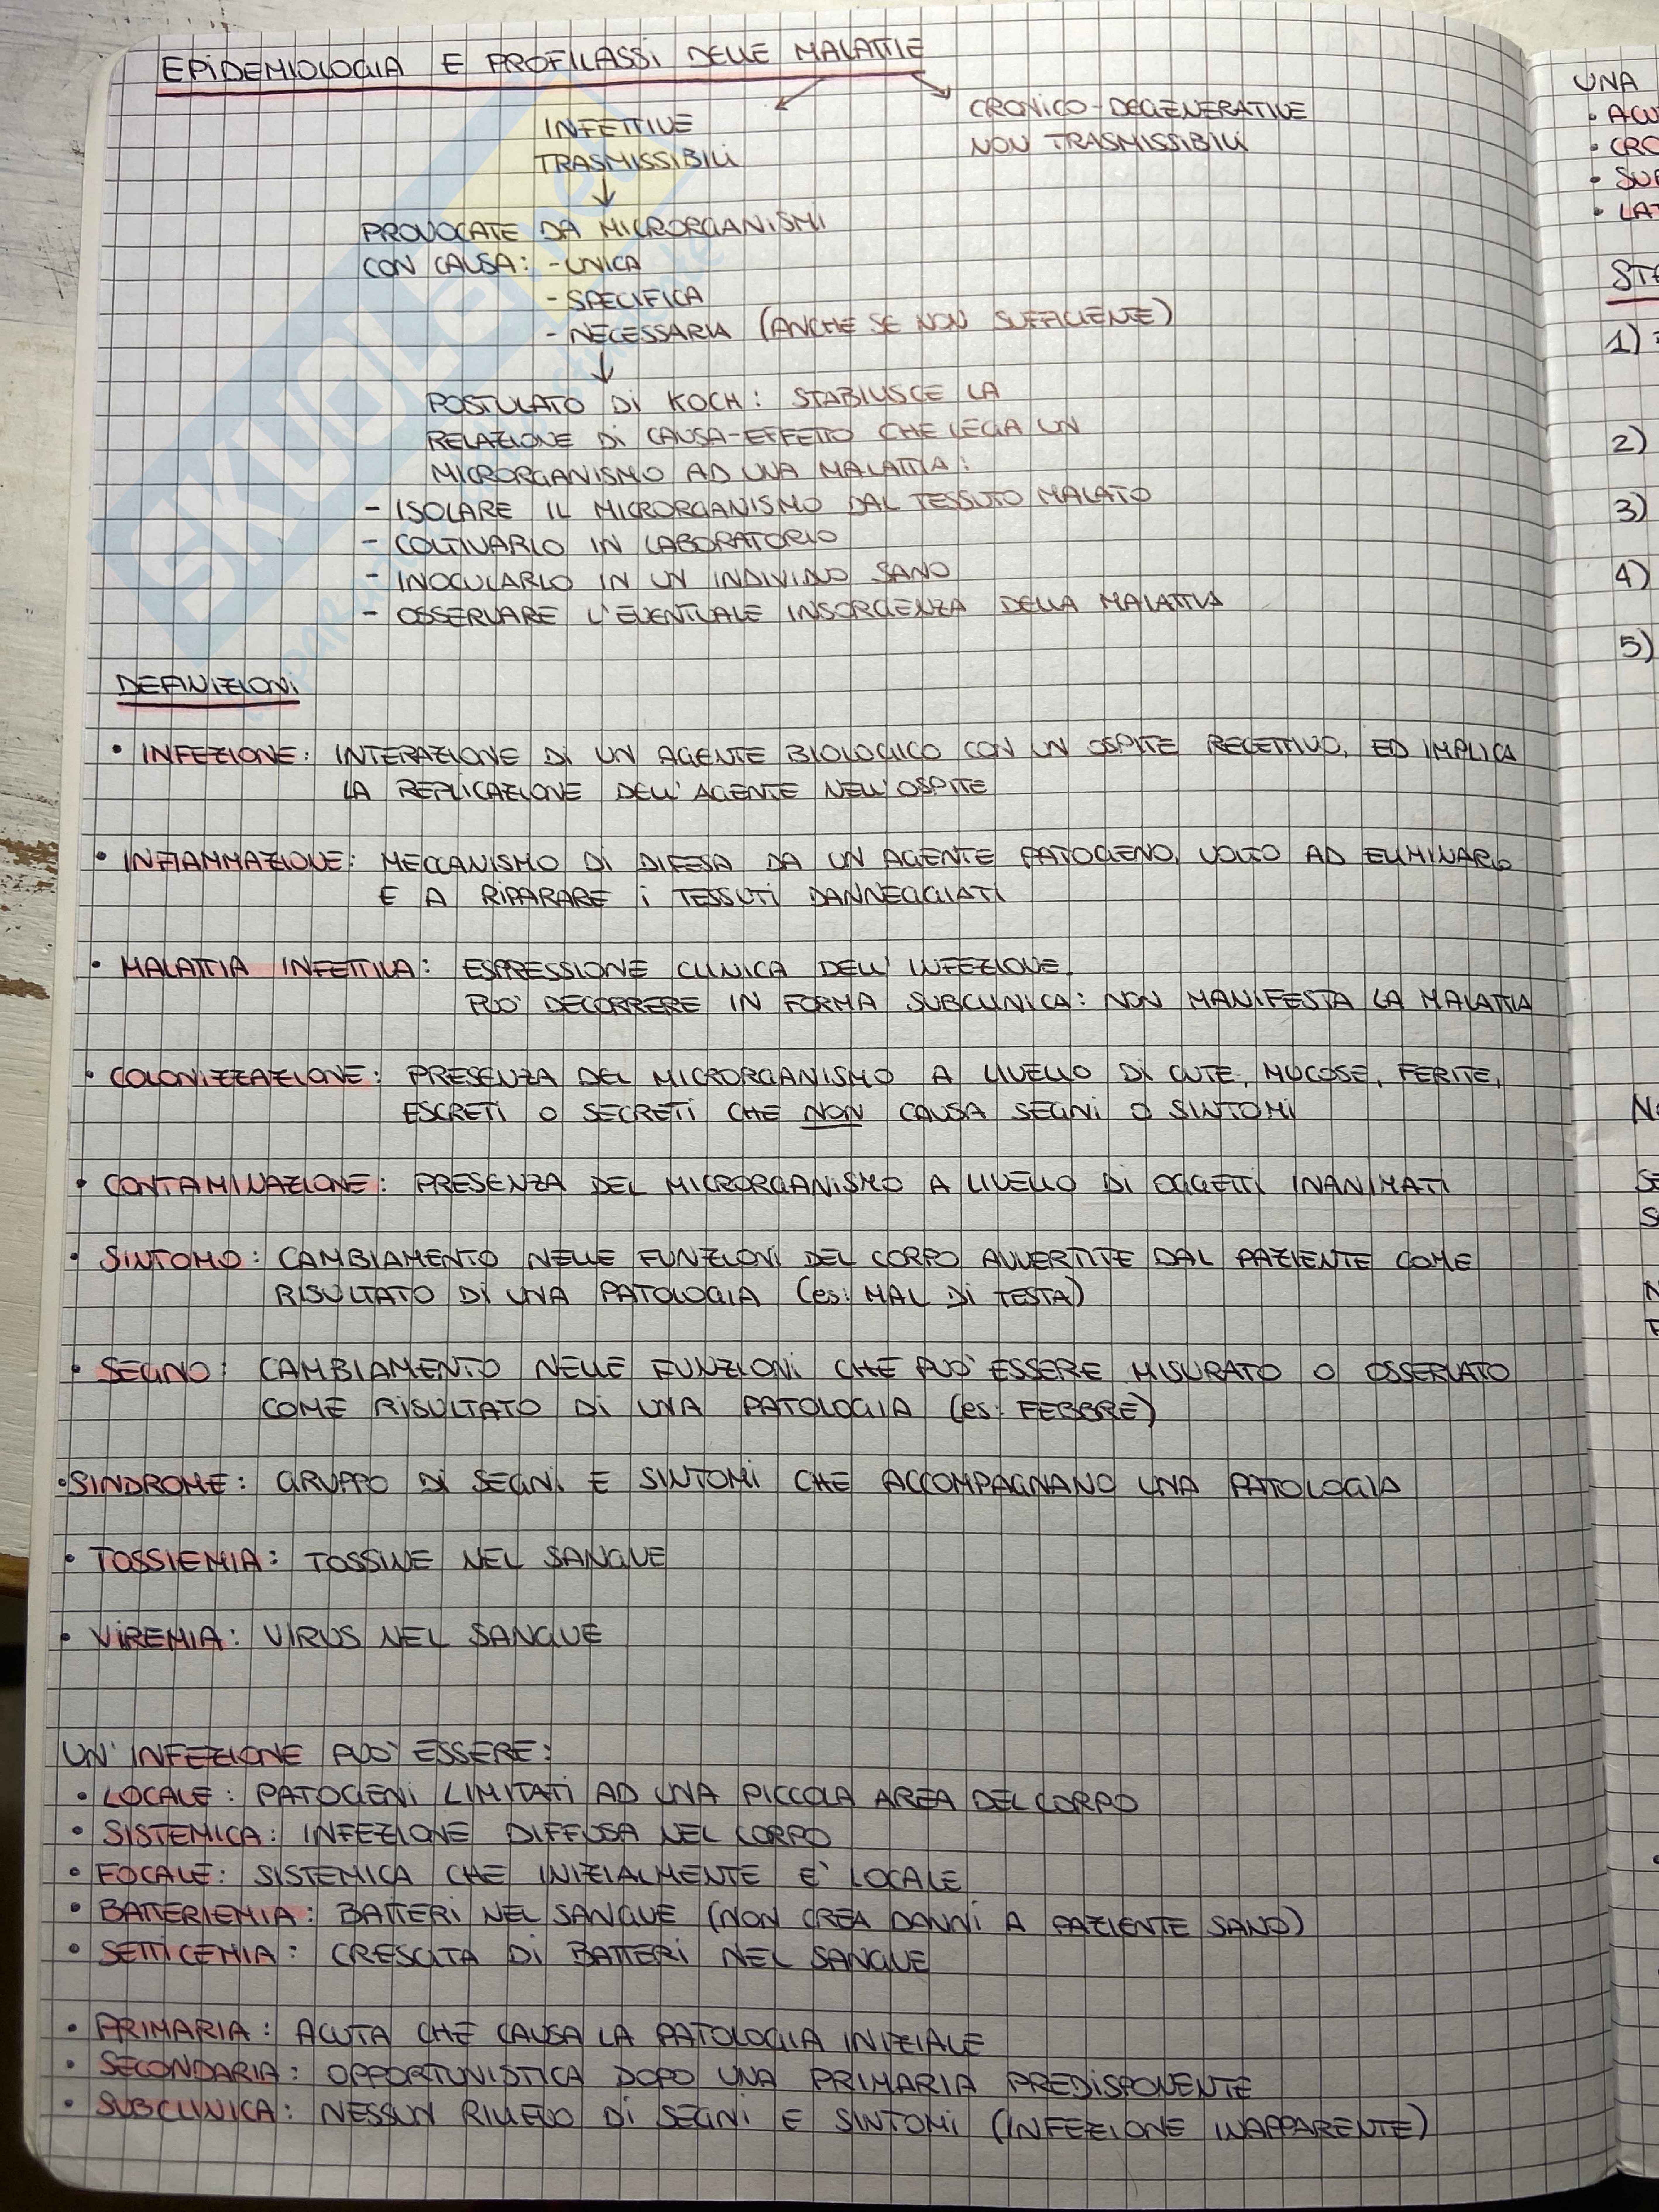 EPIDEMIOLOGIA E PROFILASSI DELLE MALATTIE
INFETTIVE
TRASMISSIBILI
CRONICO-DEGENERATIVE
NON TRASMISSIBILI
PROVOCATE DA MICRORGANISMI
CON CAUSA: -UNICA
- SPECIFICA
- NECESSARIA (ANCHE SE NON SUFFICIENTE)
POSTULATO DI KOCH: STABILISCE LA
RELAZIONE DI CAUSA-EFFETTO CHE LEGA UN
MICRORGANISMO AD UNA MALATTIA:
- ISOLARE IL MICRORGANISMO DAL TESSUTO MALATO
- COLTIVARLO IN LABORATORIO
- INOCULARLO IN UN INDIVIDUO SANO
- OSSERVARE L'EVENTUALE INSORGENZA DELLA MALATTIA
DEFINIZIONI
• INFEZIONE: INTERAZIONE DI UN AGENTE BIOLOGICO CON UN OSPITE RECETTIVO, ED IMPLICA
LA REPLICAZIONE DELL'AGENTE NELL'OSPITE
• INFIAMMAZIONE: MECCANISMO DI DIFESA DA UN AGENTE PATOGENO, VOLTO AD ELIMINARLO
E A RIPARARE I TESSUTI DANNEGGIATI
• MALATTIA INFETTIVA: ESPRESSIONE CLINICA DELL'INFEZIONE.
PUO' DECORRERE IN FORMA SUBCLINICA: NON MANIFESTA LA MALATTIA
• COLONIZZAZIONE: PRESENZA DEL MICRORGANISMO A LIVELLO DI CUTE, MUCOSE, FERITE,
ESCRETI O SECRETI CHE NON CAUSA SEGNI O SINTOMI
• CONTAMINAZIONE: PRESENZA DEL MICRORGANISMO A LIVELLO DI OGGETTI INANIMATI
• SINTOMO: CAMBIAMENTO NELLE FUNZIONI DEL CORPO AVVERTITE DAL PAZIENTE COME
RISULTATO DI UNA PATOLOGIA (es: MAL DI TESTA)
• SEGNO: CAMBIAMENTO NELLE FUNZIONI CHE PUO' ESSERE MISURATO O OSSERVATO
COME RISULTATO DI UNA PATOLOGIA (es: FEBBRE)
• SINDROME: GRUPPO DI SEGNI E SINTOMI CHE ACCOMPAGNANO UNA PATOLOGIA
• TOSSIEMIA: TOSSINE NEL SANGUE
• VIREMIA: VIRUS NEL SANGUE
UN'INFEZIONE PUO' ESSERE:
• LOCALE: PATOGENI LIMITATI AD UNA PICCOLA AREA DEL CORPO
• SISTEMICA: INFEZIONE DIFFUSA NEL CORPO
• FOCALE: SISTEMICA CHE INIZIALMENTE E' LOCALE
• BATTERIEMIA: BATTERI NEL SANGUE (NON CREA DANNI A PAZIENTE SANO)
• SETTICEMIA: CRESCITA DI BATTERI NEL SANGUE
• PRIMARIA: ACUTA CHE CAUSA LA PATOLOGIA INIZIALE
• SECONDARIA: OPPORTUNISTICA DOPO UNA PRIMARIA PREDISPONENTE
• SUBCLINICA: NESSUN RILIEVO DI SEGNI E SINTOMI (INFEZIONE INAPPARENTE)
UNA
1)
2)
3)
4)
5)